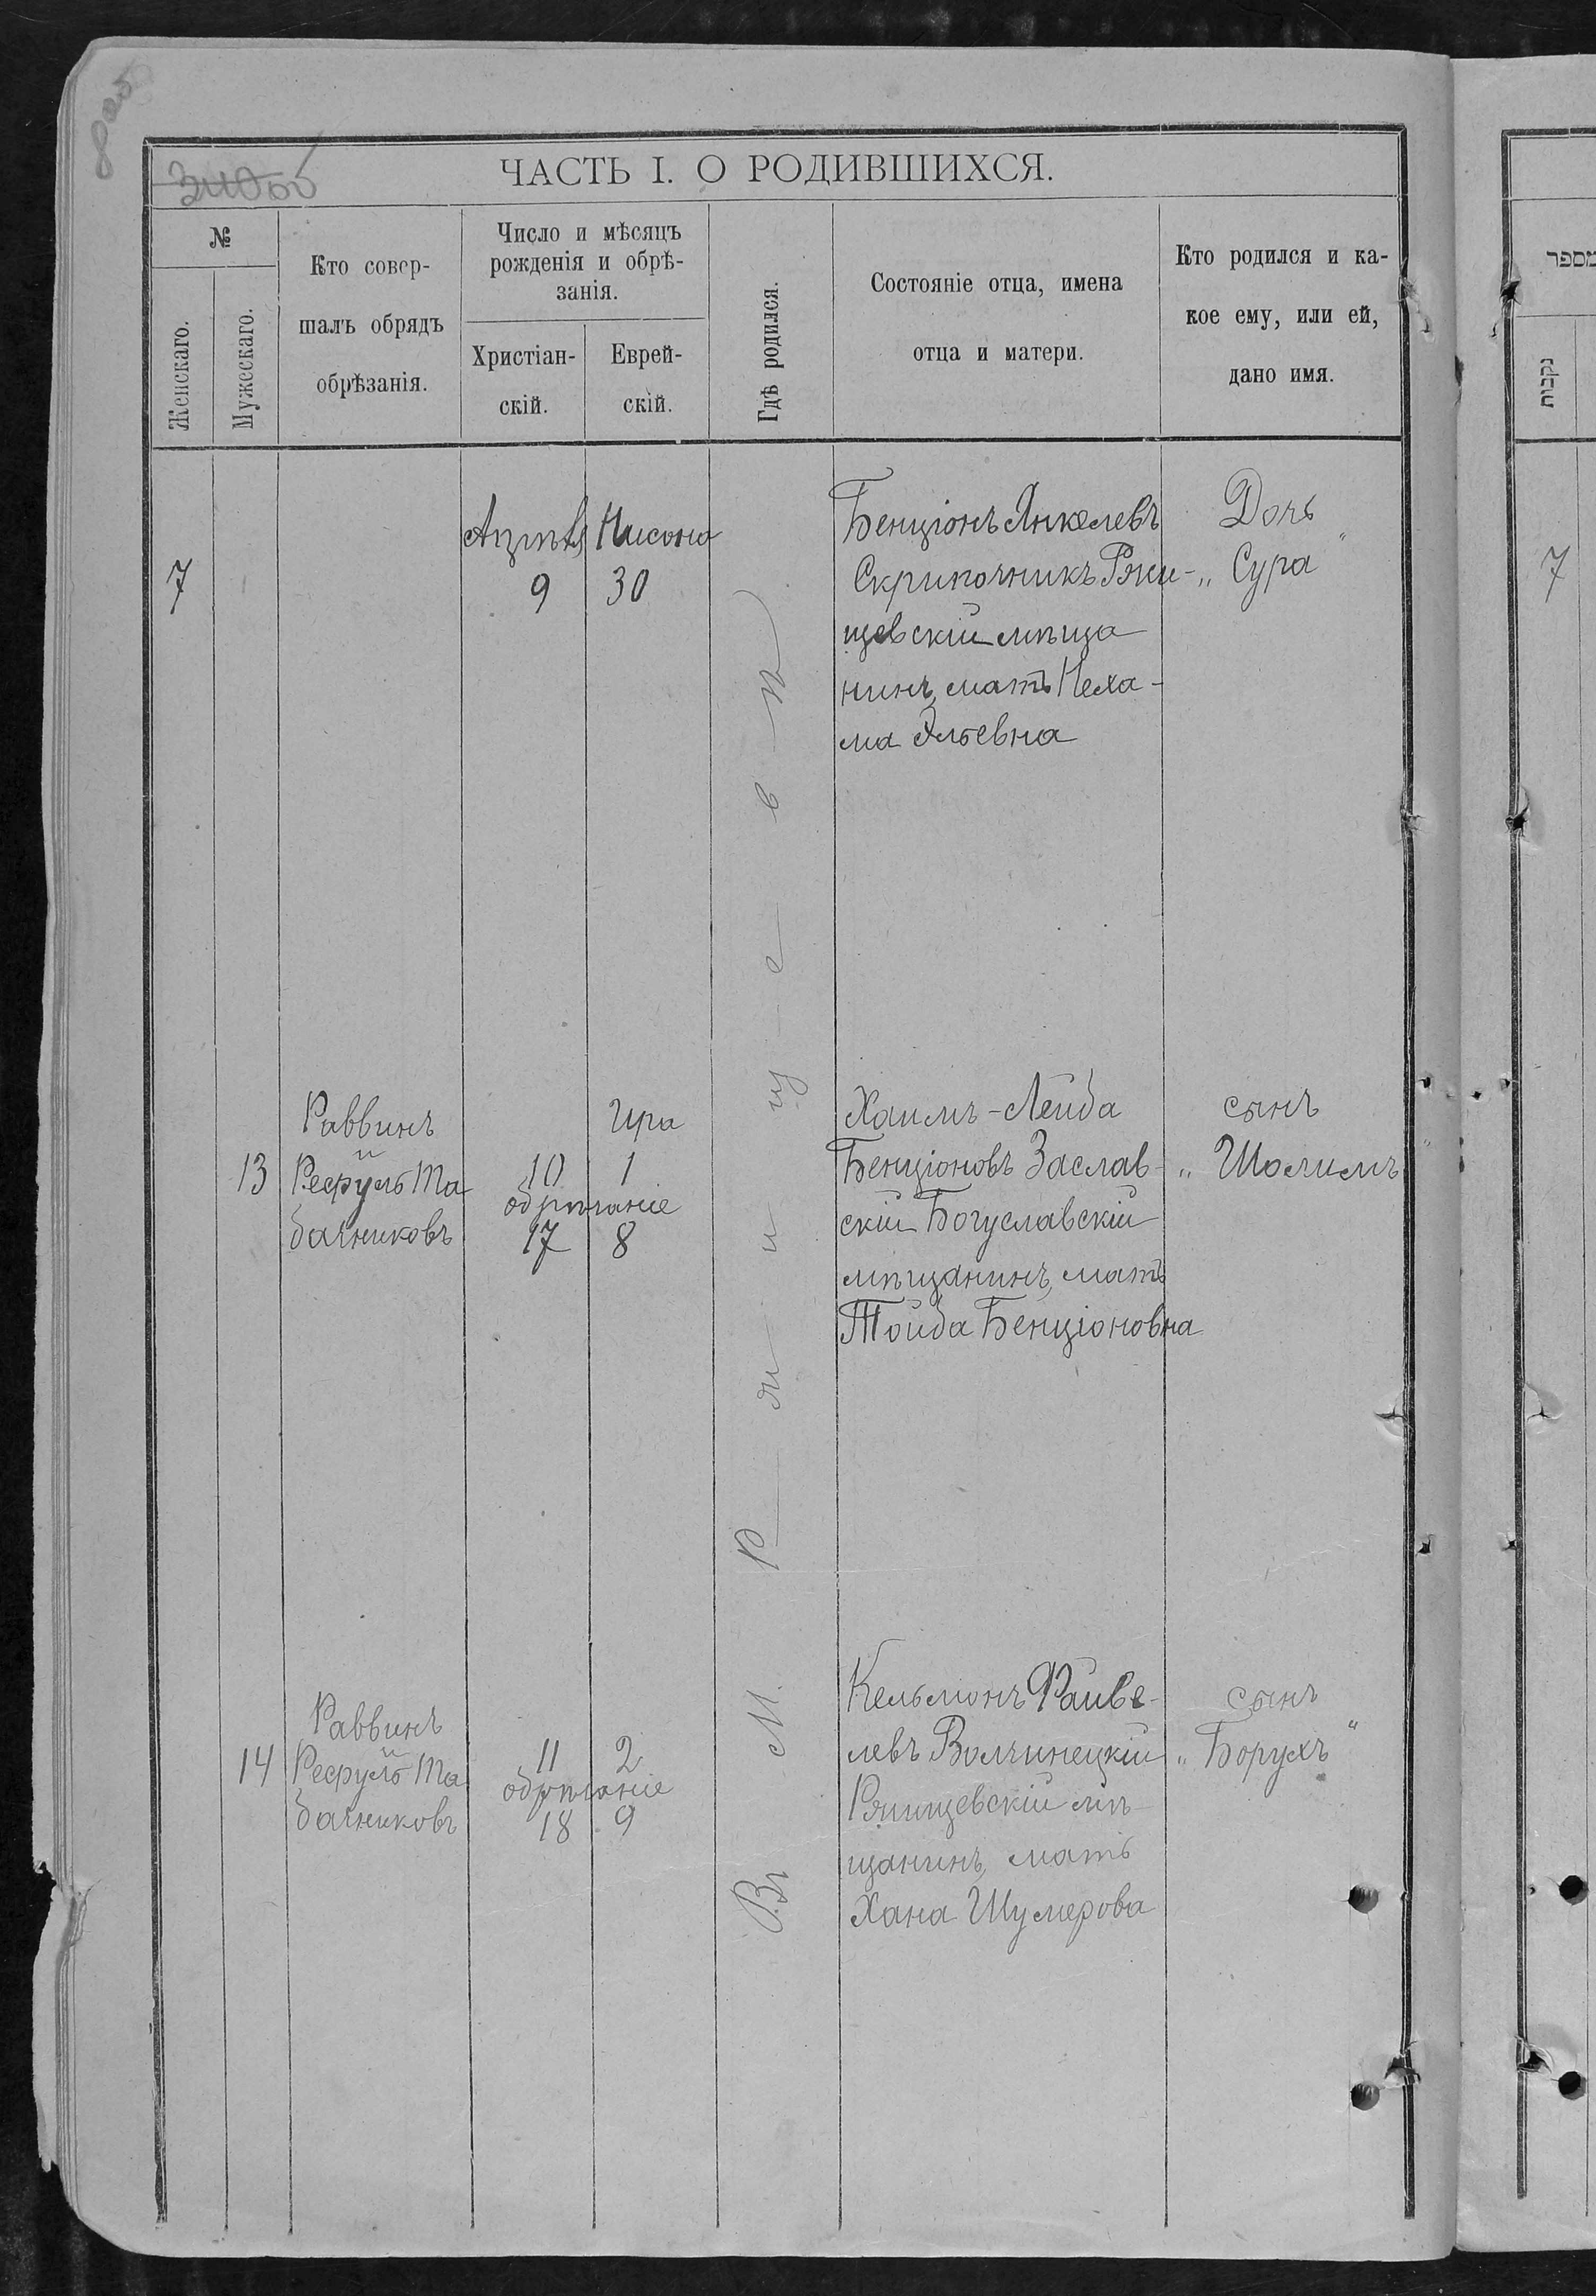 ЧАСТЬ I. О РОДИВШИХСЯ.
№
Женскаго.
Мужескаго.
Кто совер-
шалъ обрядъ
обрѣзанія.
Число и мѣсяцъ
рожденія и обрѣ-
занія.
Христіан-
скій.
Еврей-
скій.
Гдѣ родился.
Состояніе отца, имена
отца и матери.
Кто родился и ка-
кое ему, или ей,
дано имя.
מספר
נקבות
Въ М. Ржищевѣ
7
Апрѣля
9
Нисона
30
Бенціонъ Янкелевъ
Скрипочникъ Ржи-
щевскій мѣща
нинъ, мать Неха-
ма Эльевна
Дочь
„Сура"
7
13
Раввинъ
Бачниковъ
10
Ира
1
обрѣзаніе
17 8
Хаимъ-Лейба
Бенціоновъ Заслав-
скій Богуславскій
мѣщанинъ, мать
Тойба Бенціоновна
сынъ
„Шолимъ"
14
Раввинъ
бачниковъ
11 2
обрѣзаніе
18 9
Кельмонъ Файве-
левъ Волчинецкій
Ржищевскій мѣ-
щанинъ, мать
Хана Шумерова
сынъ
„Борухъ"